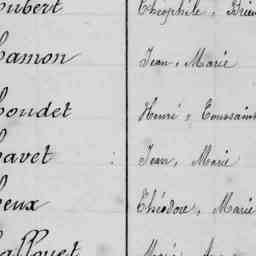 oubert Théophile, Brieu
amon Jean, Marie
oudet Henri, Toussaint
avet : Jean, Marie
eux Théodore, Marie
allouet Marie